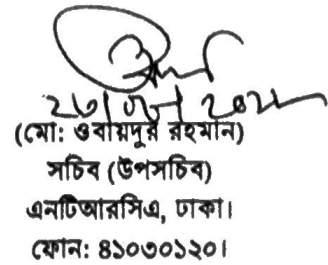 (মো: ওবায়দুর রহমান)
সচিব (উপসচিব)
এনটিআরসিএ, ঢাকা।
ফোন: ৪১০৩০১২০।